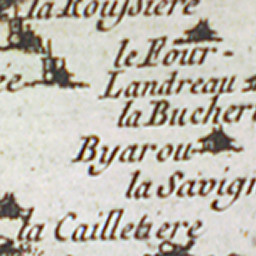 la Roussiere
le Four-
Landreau
la Bucher
Byarou
la Savign
la Cailletiere